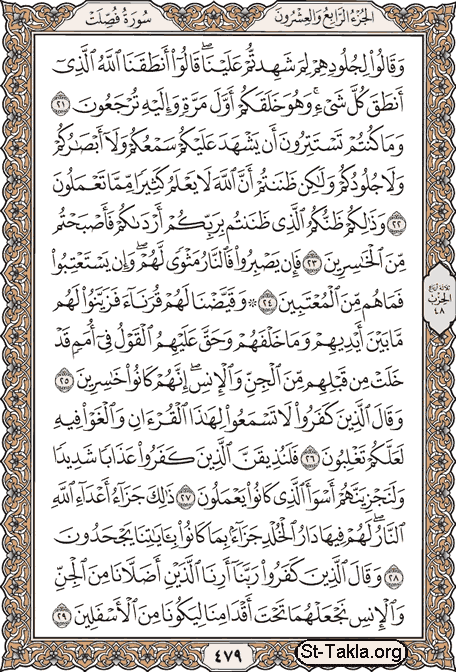 سُورَةُ فُصِّلَتْ
الجُزْءُ الرَّابِعُ وَالعِشْرُونَ
وَقَالُوا۟ لِجُلُودِهِمْ لِمَ شَهِدتُّمْ عَلَيْنَا ۖ قَالُوٓا۟ أَنطَقَنَا ٱللَّهُ ٱلَّذِىٓ
أَنطَقَ كُلَّ شَىْءٍ وَهُوَ خَلَقَكُمْ أَوَّلَ مَرَّةٍ وَإِلَيْهِ تُرْجَعُونَ ٢١
وَمَا كُنتُمْ تَسْتَتِرُونَ أَن يَشْهَدَ عَلَيْكُمْ سَمْعُكُمْ وَلَآ أَبْصَٰرُكُمْ
وَلَا جُلُودُكُمْ وَلَٰكِن ظَنَنتُمْ أَنَّ ٱللَّهَ لَا يَعْلَمُ كَثِيرًا مِّمَّا تَعْمَلُونَ
٢٢ وَذَٰلِكُمْ ظَنُّكُمُ ٱلَّذِى ظَنَنتُم بِرَبِّكُمْ أَرْدَىٰكُمْ فَأَصْبَحْتُم
مِّنَ ٱلْخَٰسِرِينَ ٢٣ فَإِن يَصْبِرُوا۟ فَٱلنَّارُ مَثْوًى لَّهُمْ ۖ وَإِن يَسْتَعْتِبُوا۟
فَمَا هُم مِّنَ ٱلْمُعْتَبِينَ ٢٤ ۞ وَقَيَّضْنَا لَهُمْ قُرَنَآءَ فَزَيَّنُوا۟ لَهُم
مَّا بَيْنَ أَيْدِيهِمْ وَمَا خَلْفَهُمْ وَحَقَّ عَلَيْهِمُ ٱلْقَوْلُ فِىٓ أُمَمٍ قَدْ
خَلَتْ مِن قَبْلِهِم مِّنَ ٱلْجِنِّ وَٱلْإِنسِ ۖ إِنَّهُمْ كَانُوا۟ خَٰسِرِينَ ٢٥
وَقَالَ ٱلَّذِينَ كَفَرُوا۟ لَا تَسْمَعُوا۟ لِهَٰذَا ٱلْقُرْءَانِ وَٱلْغَوْا۟ فِيهِ
لَعَلَّكُمْ تَغْلِبُونَ ٢٦ فَلَنُذِيقَنَّ ٱلَّذِينَ كَفَرُوا۟ عَذَابًا شَدِيدًا
وَلَنَجْزِيَنَّهُمْ أَسْوَأَ ٱلَّذِى كَانُوا۟ يَعْمَلُونَ ٢٧ ذَٰلِكَ جَزَآءُ أَعْدَآءِ ٱللَّهِ
ٱلنَّارُ ۖ لَهُمْ فِيهَا دَارُ ٱلْخُلْدِ ۖ جَزَآءًۢ بِمَا كَانُوا۟ بِـَٔايَٰتِنَا يَجْحَدُونَ
٢٨ وَقَالَ ٱلَّذِينَ كَفَرُوا۟ رَبَّنَآ أَرِنَا ٱلَّذَيْنِ أَضَلَّانَا مِنَ ٱلْجِنِّ
وَٱلْإِنسِ نَجْعَلْهُمَا تَحْتَ أَقْدَامِنَا لِيَكُونَا مِنَ ٱلْأَسْفَلِينَ ٢٩
الحِزْب
٤٨
٤٧٩
St-Takla.org